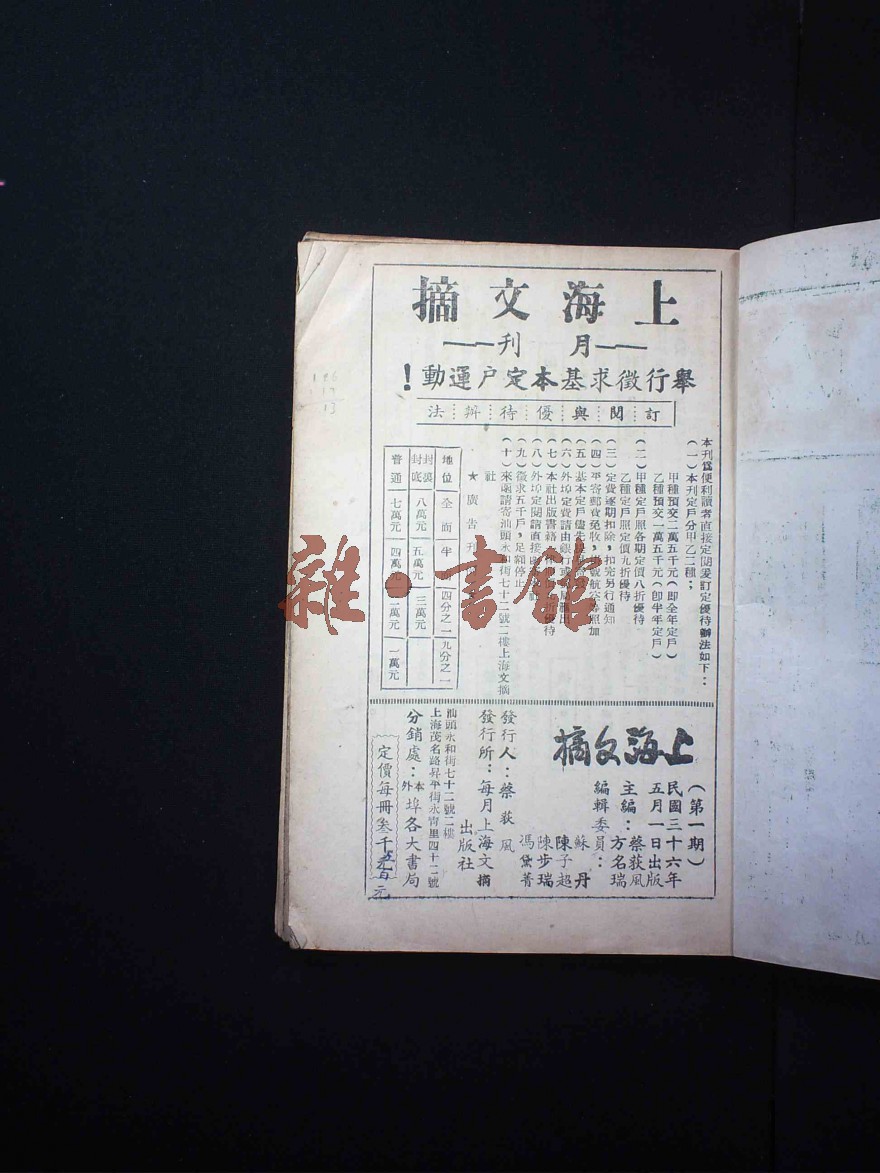 上海文摘
月刊
舉行徵求基本定户運動！
訂閱與優待辦法
本刊爲便利讀者直接定閱爰訂定優待辦法如下：
（一）本刊定戶分甲乙二種；
甲種預交二萬五千元（即全年定戶）
乙種預交一萬五千元（卽半年定戶）
（二）甲種定戶照各期定價八折優待
乙種定戶照定價九折優待
（三）定費逐期扣除，扣完另行通知
（四）平寄郵費免收，掛號航空等照加
（五）基本定戶儘先
（六）外埠定費請由銀行或
（七）本社出版書籍 折優待
（八）外埠定閱請直接函
（九）徵求五千戶，足額停止
（十）來函請寄汕頭永和街七十二號二樓上海文摘
社
★廣告刊
地位 全面 半 四分之一 九分之一
封裏封底 八萬元 五萬元 三萬元
普通 七萬元 四萬元 二萬元 一萬元
上海文摘
（第一期）
民國三十六年
五月一日出版
主編：蔡荻風
方名瑞
編輯委員：
蘇丹
陳子超
陳步瑞
馮黛菁
發行人：蔡荻風
發行所：每月上海文摘
出版社
汕頭永和街七十二號二樓
上海茂名路昇平街永宵里四十二號
分銷處：本外埠各大書局
定價每冊叁千五百元
雜·書館